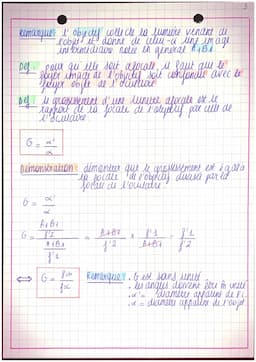 Remarque : L'objectif collecte la lumière venant de
l'objet et donne de celui-ci une image
intermédiaire notée en général A1B1
Def : pour qu'elle soit afocale, il faut que le
foyer image de l'objectif soit confondu avec le
foyer objet de l'oculaire
Def : le grossissement d'une lunette afocale est le
rapport de la focale de l'objectif par celle de
l'oculaire
G = α' / α
Démonstration : démontrer que le grossissement est égal à
la focale de l'objectif divisé par la
focale de l'oculaire
G = α' / α
G = (A1B1 / f'2) / (A1B1 / f'1) = A1B1 / f'2 × f'1 / A1B1 = f'1 / f'2
⇔ G =
Remarque : . G est sans unité
. les angles doivent être la unité
. α' = diamètre apparent de
. α = diamètre apparent de l'objet